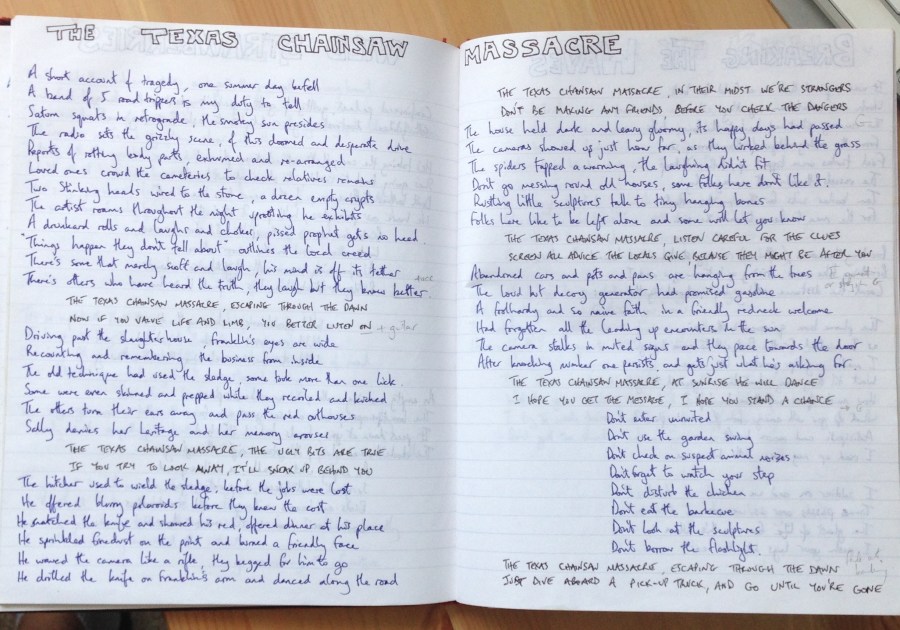 THE TEXAS CHAINSAW MASSACRE
A short account of tragedy, one summer day befell
A band of 5 road trippers is my duty to tell
Saturn squats in retrograde, the smoking sun presides
The radio sets the grizzly scene, of this doomed and desperate drive
Reports of rotting body parts, exhumed and re-arranged
Loved ones crowd the cemeteries to check relatives remains
Two stinking heads wired to the stone, a dozen empty crypts
The artist roams throughout the night uprooting he exhibits
A drunkard rolls and laughs and chokes, pissed prophet gets no heed
"Things happen they don't tell about" outlines the local creed
There's some that merely scoff and laugh, his mind is off its tether
There's others who have heard the truth, they laugh but they know better.
THE TEXAS CHAINSAW MASSACRE, ESCAPING THROUGH THE DAWN
NOW IF YOU VALVE LIFE AND LIMB, YOU BETTER LISTEN ON + guitar
Driving past the slaughterhouse, franklin's eyes are wide
Recounting and remembering the business from inside
The old technique had used the sledge, some took more than one lick.
Some were even skinned and prepped while they recoiled and kicked
The others turn their ears away and pass the red outhouses
Sally denies her heritage and her memory arouses
THE TEXAS CHAINSAW MASSACRE, THE UGLY BITS ARE TRUE
IF YOU TRY TO LOOK AWAY, IT'LL SNEAK UP BEHIND YOU
The hitcher used to wield the sledge, before the jobs were lost
He offered blurry polaroids before they knew the cost
He snatched the knife and showed his red, offered dinner at his place
He sprinkled firedust on the print and burned a friendly face
He waved the camera like a rifle, they begged for him to go
He drilled the knife on Franklin's arm and danced along the road
THE TEXAS CHAINSAW MASSACRE, IN THEIR MIDST WE'RE STRANGERS
DON'T BE MAKING ANY FRIENDS BEFORE YOU CHECK THE DANGERS
The house held dark and leary gloomy, its happy days had passed
The cameras showed up just how far, as they lurked behind the grass
The spiders tapped a warning, the laughing didn't fit
Don't go messing round old houses, some folks here don't like it.
Rustling little sculptures talk to tiny hanging bones
Folks here like to be left alone and some will let you know
THE TEXAS CHAINSAW MASSACRE, LISTEN CAREFUL FOR THE CLUES
SCREEN ALL ADVICE THE LOCALS GIVE BECAUSE THEY MIGHT BE AFTER YOU
Abandoned cars and pots and pans are hanging from the trees
The loud but decoy generator had promised gasoline
A foolhardy and so naive faith in a friendly redneck welcome
Had forgotten all the leading up encounters in the sun
The camera stalks in muted signs and they pace towards the door
After knocking number one persists and gets just what he's asking for..
THE TEXAS CHAINSAW MASSACRE, AT SUNRISE HE WILL DANCE
I HOPE YOU GET THE MESSAGE, I HOPE YOU STAND A CHANCE
Don't enter uninvited
Don't use the garden swing
Don't check on suspect animal noises
Don't forget to watch your step
Don't disturb the chicken
Don't eat the barbecue
Don't look at the sculptures
Don't borrow the flashlight.
THE TEXAS CHAINSAW MASSACRE, ESCAPING THROUGH THE DAWN
JUST DIVE ABOARD A PICK-UP TRUCK, AND GO UNTIL YOU'RE GONE